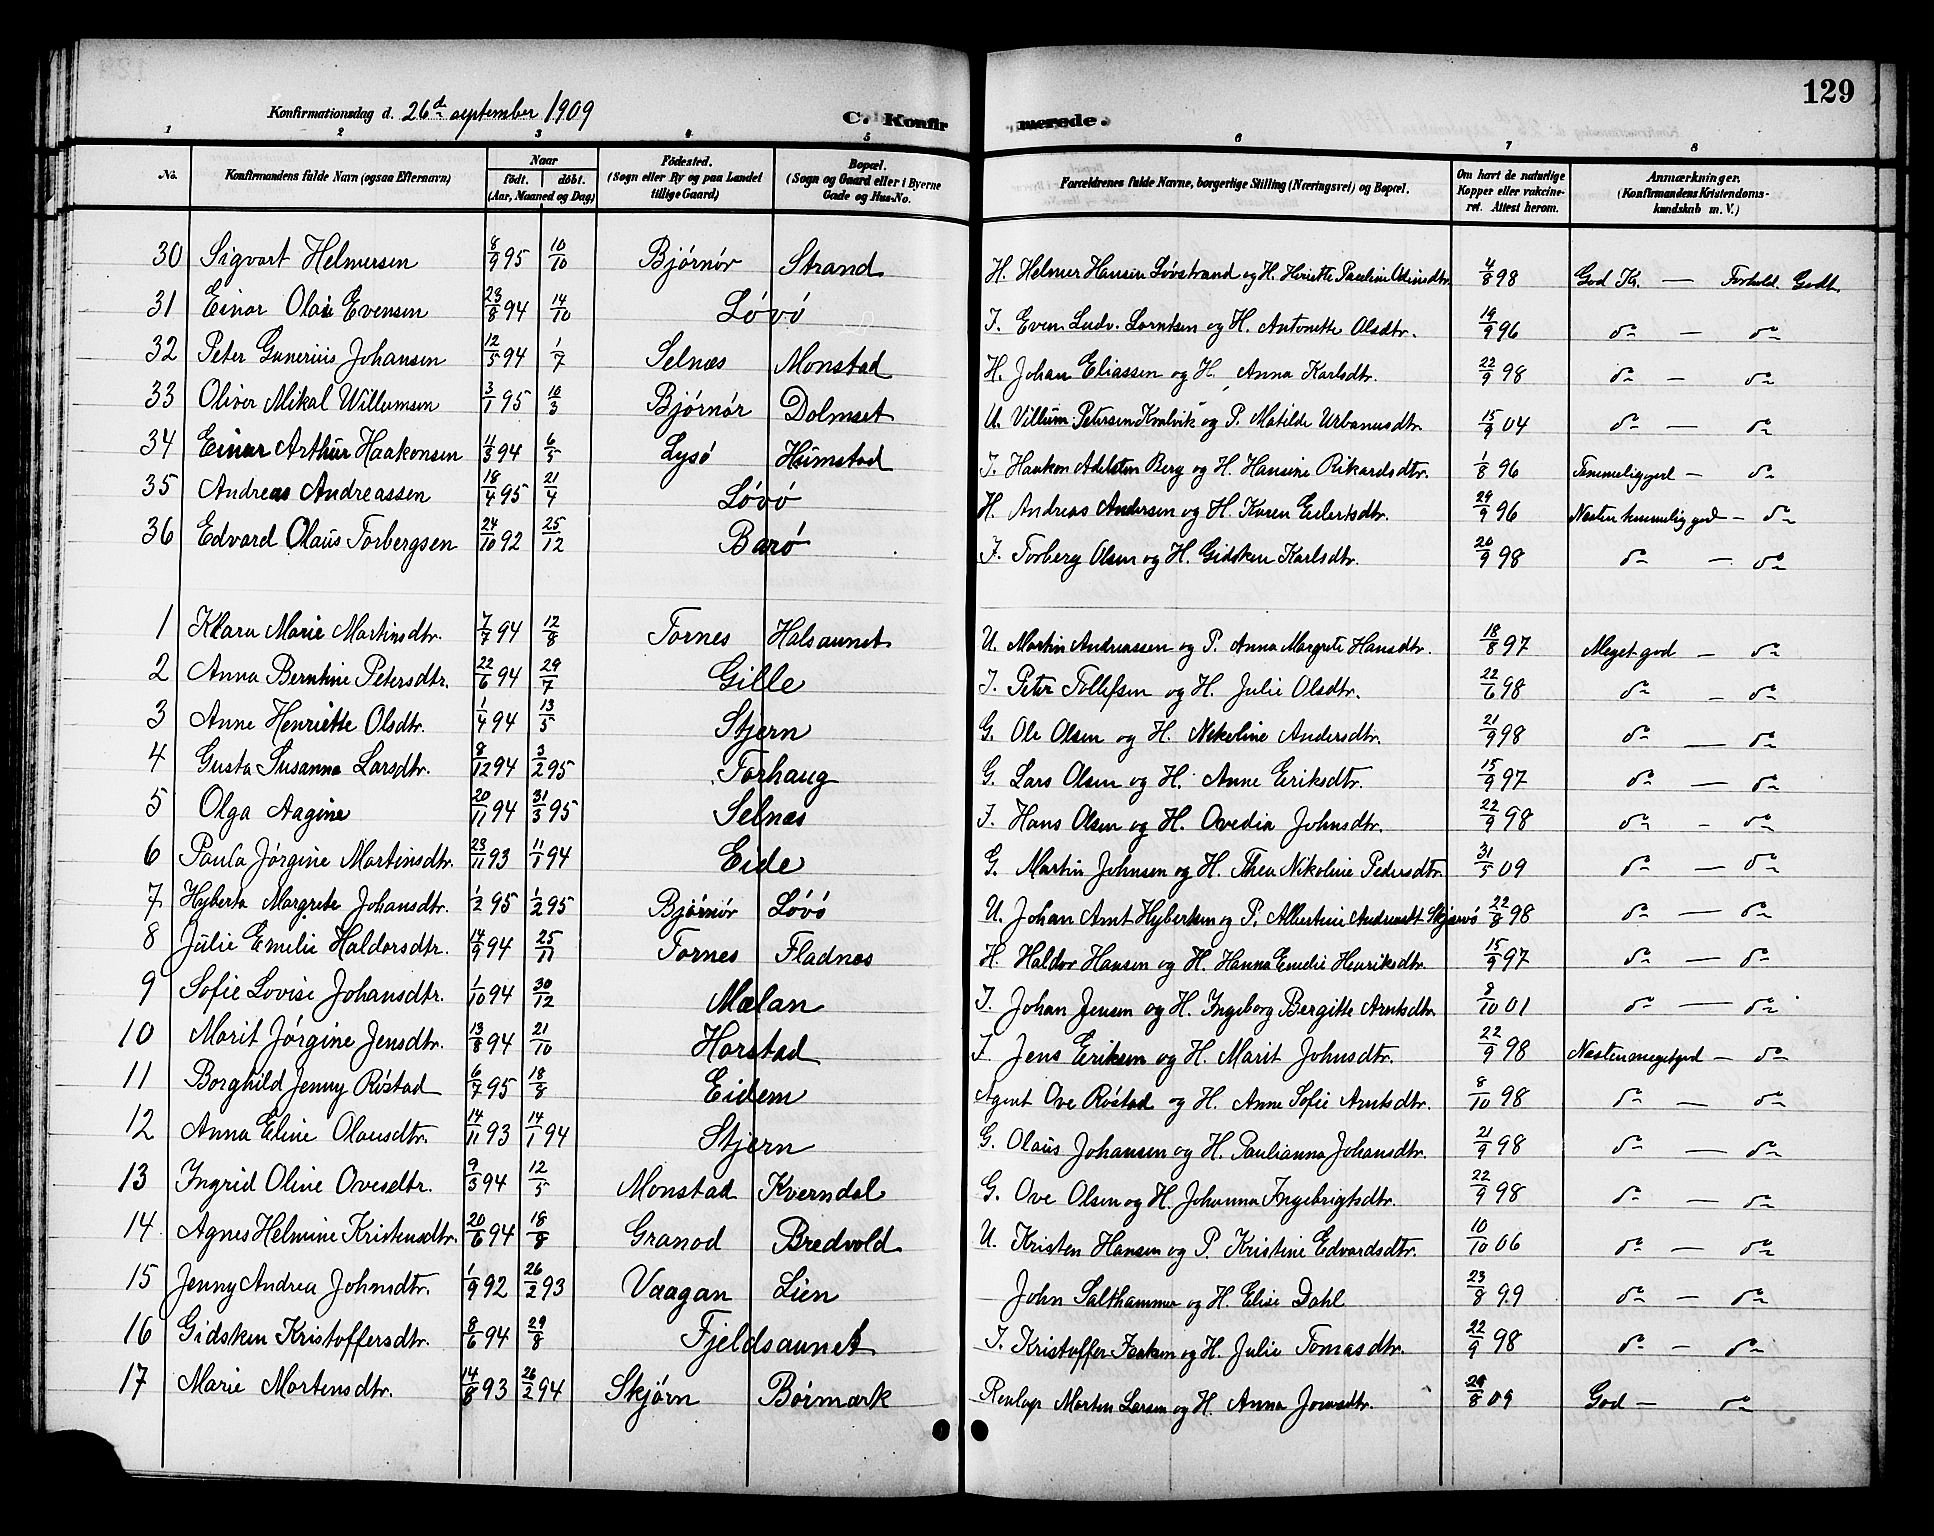 129
Konfirmationsdag d. 26d september 1909
C. Konfirmerede.
1 2 3 4 5 6 7 8
No. Konfirmandens fulde Navn (ogsaa Efternavn) Naar født. døbt. (Aar, Maaned og Dag) Fødested. (Sogn eller By og paa Landet tillige Gaard) Bopæl. (Sogn og Gaard eller i Byerne Gade og Hus-No. Forældrenes fulde Navne, borgerlige Stilling (Næringsvei) og Bopæl. Om havt de naturlige Kopper eller vakcineret. Attest herom. Anmærkninger. (Konfirmandens Kristendomskundskab m. V.)
30 Sigvart Helmersen 8/9 95 10/10 Bjørnør Strand H. Helmer Hansen Løvstrand og H. Henriette Pauline Odinsdtr. 4/8 98 God K. — Forhold Godt
31 Einar Olai Evensen 23/8 94 14/10 Løvø I. Even Ludv. Lorntsen og H. Antonette Olsdtr. 19/9 96 do — do
32 Peter Gunerius Johansen 12/5 94 1/7 Selnæs Monstad H. Johan Eliassen og H. Anna Karlsdtr. 22/9 98 do — do
33 Oliver Mikal Willumsen 3/1 95 10/3 Bjørnør Dolmset U. Villum Petersen Kvalvik og P. Matilde Urbanusdtr. 15/9 04 do — do
34 Einar Arthur Haakonsen 4/3 94 6/5 Lysø Humstad I. Haakon Adelsten Berg og H. Hansine Rikardsdtr. 1/8 96 Temmelig god — do
35 Andreas Andreassen 18/4 95 21/4 Løvø H. Andreas Andersen og H. Karen Eilertsdtr. 29/9 96 Næsten temmelig god — do
36 Edvard Olaus Torbergsen 24/10 92 25/12 Barø I. Torberg Olsen og H. Gidsken Karlsdtr. 20/9 98 do — do
1 Klara Marie Martinsdtr. 7/7 94 12/8 Tornes Halsaunet U. Martin Andreassen og P. Anna Margrete Hansdtr. 18/8 97 Meget god — do
2 Anna Berntine Petersdtr. 22/6 94 29/7 Gille I. Peter Tollefsen og H. Julie Olsdtr. 22/6 98 do — do
3 Anne Henriette Olsdtr. 1/4 94 13/5 Stjern G. Ole Olsen og H. Nekoline Andersdtr. 21/9 98 do — do
4 Gusta Susanna Larsdtr. 8/12 94 3/2 95 Torhaug G. Lars Olsen og H. Anne Eriksdtr. 15/9 97 do — do
5 Olga Aagine 20/11 94 31/3 95 Selnæs I. Hans Olsen og H. Ovedia Johnsdtr. 22/9 98 do — do
6 Paula Jørgine Martinsdtr. 23/11 93 11/1 94 Eide G. Martin Johnsen og H. Thea Nikoline Pedersdtr. 31/5 09 do — do
7 Hyberta Margrete Johansdtr. 1/2 95 1/2 95 Bjørnør Løvø U. Johan Arnt Hybertsen og P. Albertine Andreasdt Skjærvø 22/8 98 do — do
8 Julie Emelie Haldorsdtr. 14/9 94 25/11 Tornes Fladnes H. Haldor Hansen og H. Hanna Emelie Henriksdtr. 15/9 97 do — do
9 Sofie Lovise Johansdtr. 1/10 94 30/12 Mælan I. Johan Jensen og H. Ingeborg Bergitte Arntsdtr. 8/10 01 do — do
10 Marit Jørgine Jensdtr. 13/8 94 21/10 Harstad I. Jens Eriksen og H. Marit Johnsdtr. 22/9 98 Næsten meget god — do
11 Borghild Jenny Røstad 6/7 95 18/8 Eidem Agent Ove Røstad og H. Anne Sofie Arntsdtr. 8/10 98 do — do
12 Anna Eline Olausdtr. 14/11 93 14/1 94 Stjern G. Olaus Johansen og H. Paulianna Johansdtr. 21/9 98 do — do
13 Ingrid Oline Ovesdtr. 9/3 94 12/5 Monstad Kverndal G. Ove Olsen og H. Johanna Ingebrigtsdtr. 22/9 98 do — do
14 Agnes Helmine Kristensdtr. 20/6 94 18/8 Granod Bredvold U. Kristen Hansen og P. Kristine Edvardsdtr. 10/10 06 do — do
15 Jenny Andrea Johnsdtr. 1/9 92 26/2 93 Vaagan Lien John Salthammer og H. Elise Dahl 23/8 99 do — do
16 Gidsken Kristoffersdtr. 8/6 94 29/8 Fjeldsaunet I. Kristoffer Isaksen og H. Julie Tomasdtr. 22/9 98 do — do
17 Marie Mortensdtr. 14/8 93 26/2 94 Skjørn Børmark Morten Larsen og H. Anna Jonsdtr. /8 09 God — do